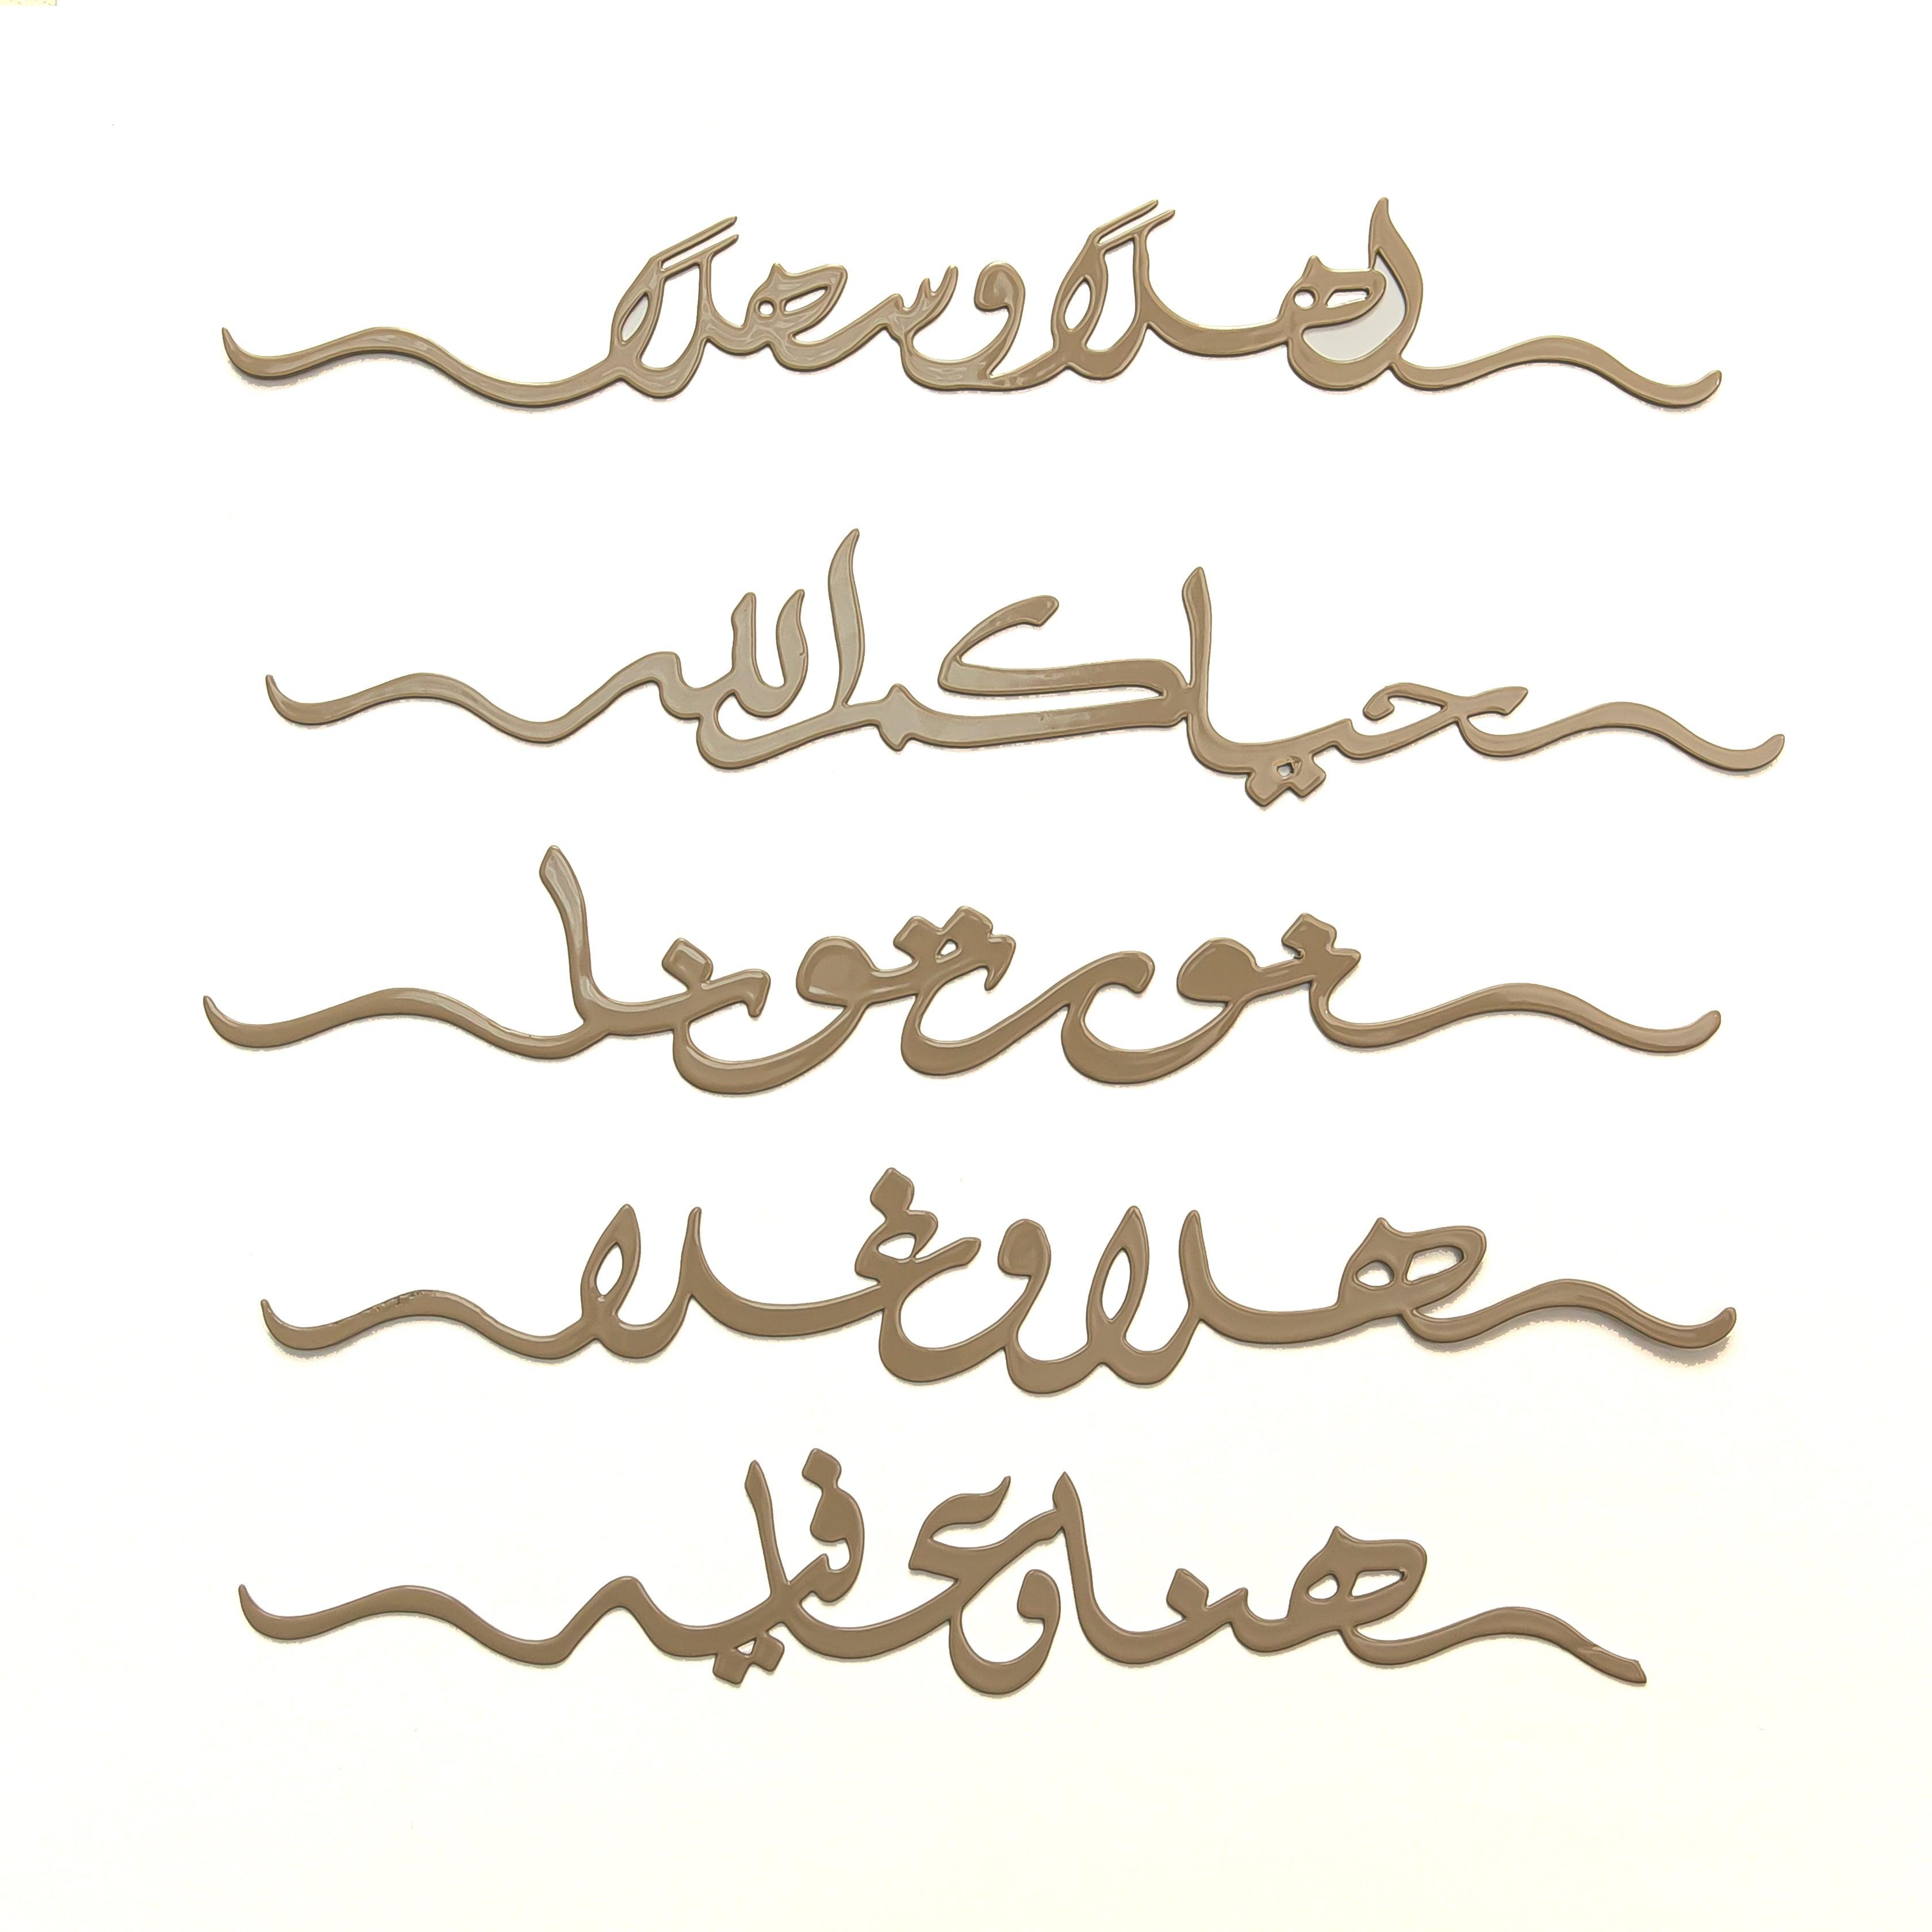 اهلاً وسهلاً
حياكم الله
نورتونا
هلا وغلا
هنا وعافيه